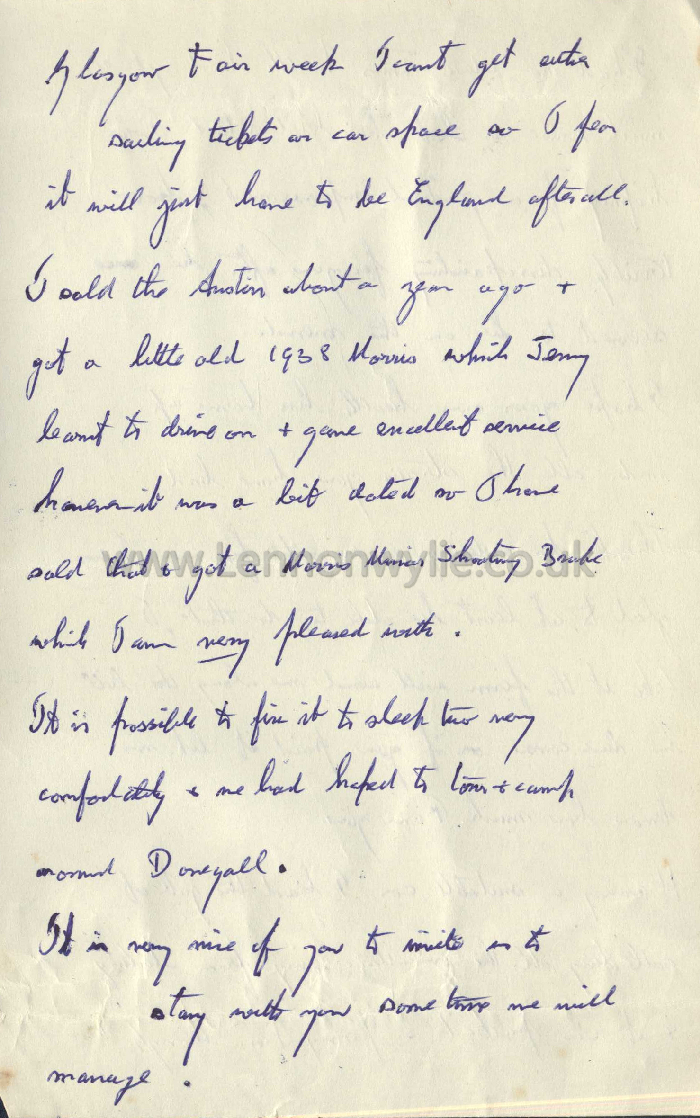 Glasgow Fair week I cant get either
sailing tickets or car space so I fear
it will just have to be England afterall.
I sold the Austin about a year ago +
got a little old 1938 Morris which Jenny
learnt to drive on + gave excellent service
however it was a bit dated so I have
sold that & got a Morris Minor Shooting Brake
www.Lennonwylie.co.uk
which I am very pleased with.
It is possible to fix it to sleep two very
comfortably & we had hoped to tour + camp
around Donegall.
It is very nice of you to invite us to
stay with you sometime we will
manage.